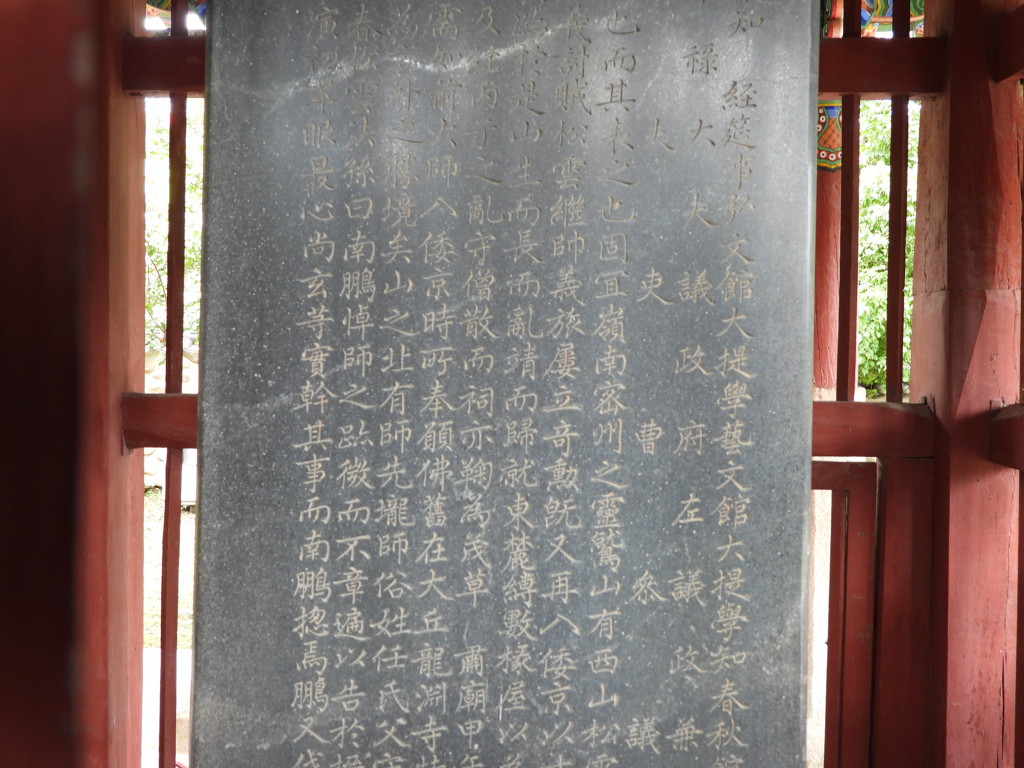 知 經筵事弘文館大提學藝文館大提學知春秋館
祿大 大 議政府左議政兼
大 吏曹參議
也而其表之也固宜嶺南密州之靈鷲山有西山松雲
長討賊松雲繼師義旅屢立奇勳旣又再入倭京以
於是山生而長而亂靖而歸就東麓縛數椽屋以
及 丙丁之亂守僧散而祠亦鞠爲茂草 肅廟甲午
儒 前大師入倭京時所奉願佛舊在大丘龍淵寺
爲 之勝境矣山之北有師先壠師俗姓任氏父
春松雲法孫曰南鵬悼師之跡微而不章遍以告於
寅初 眼最心尚玄等實幹其事而南鵬揔焉鵬又